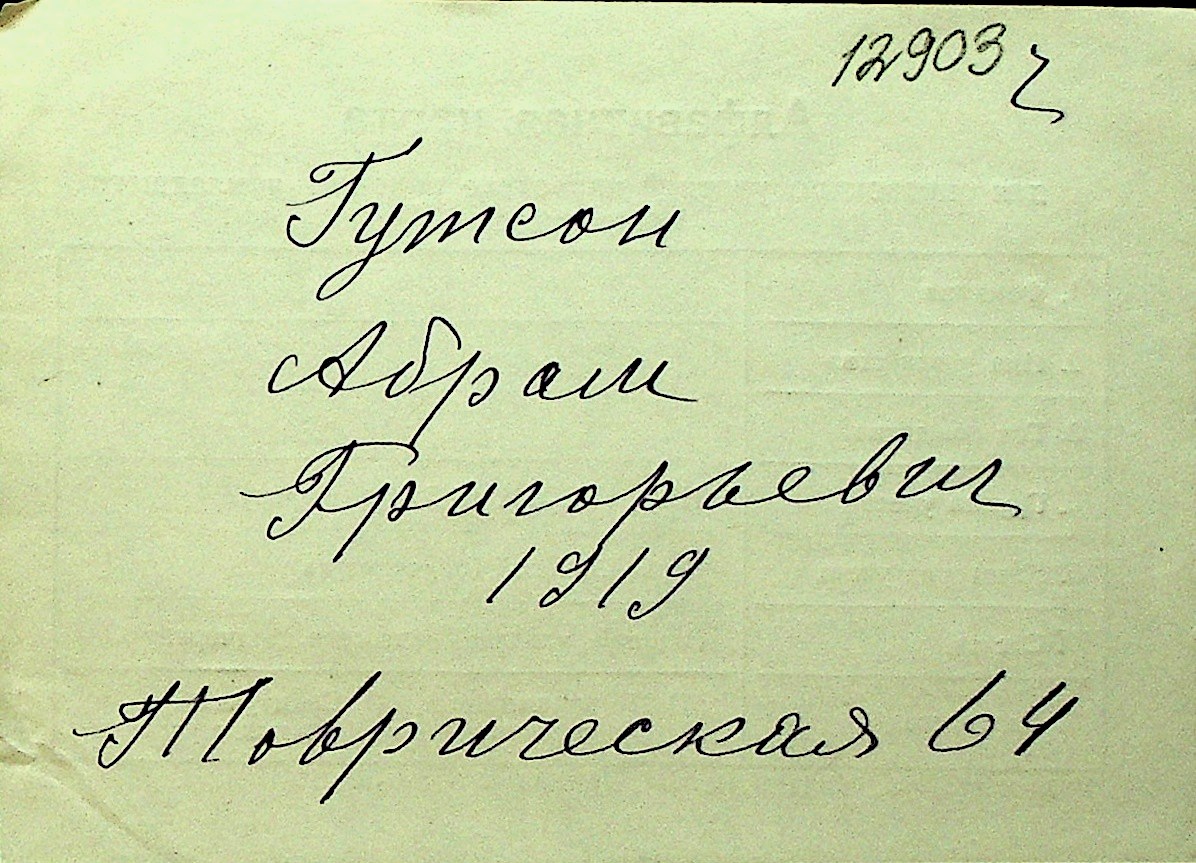 12903 ч
Гутсон
Абрам
Григорьевич
1919
Товрическая 64